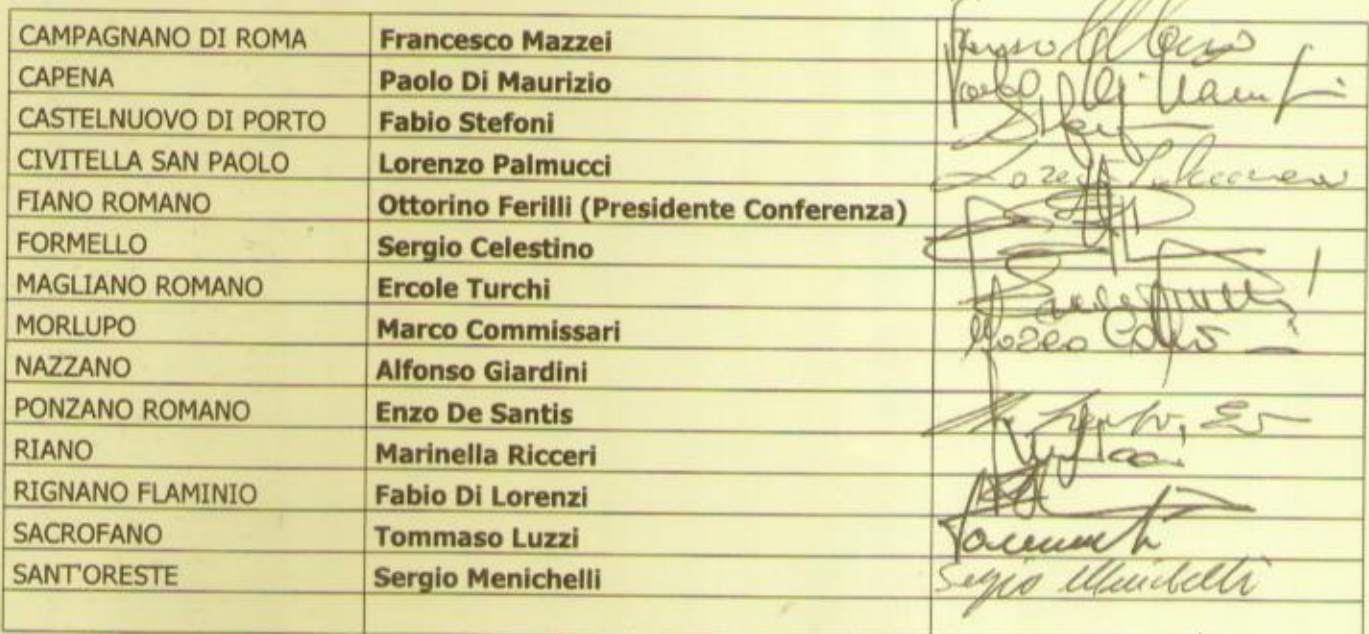 CAMPAGNANO DI ROMA Francesco Mazzei
CAPENA Paolo Di Maurizio
CASTELNUOVO DI PORTO Fabio Stefoni
CIVITELLA SAN PAOLO Lorenzo Palmucci
FIANO ROMANO Ottorino Ferilli (Presidente Conferenza)
FORMELLO Sergio Celestino
MAGLIANO ROMANO Ercole Turchi
MORLUPO Marco Commissari
NAZZANO Alfonso Giardini
PONZANO ROMANO Enzo De Santis
RIANO Marinella Ricceri
RIGNANO FLAMINIO Fabio Di Lorenzi
SACROFANO Tommaso Luzzi
SANT'ORESTE Sergio Menichelli Sergio Menichelli